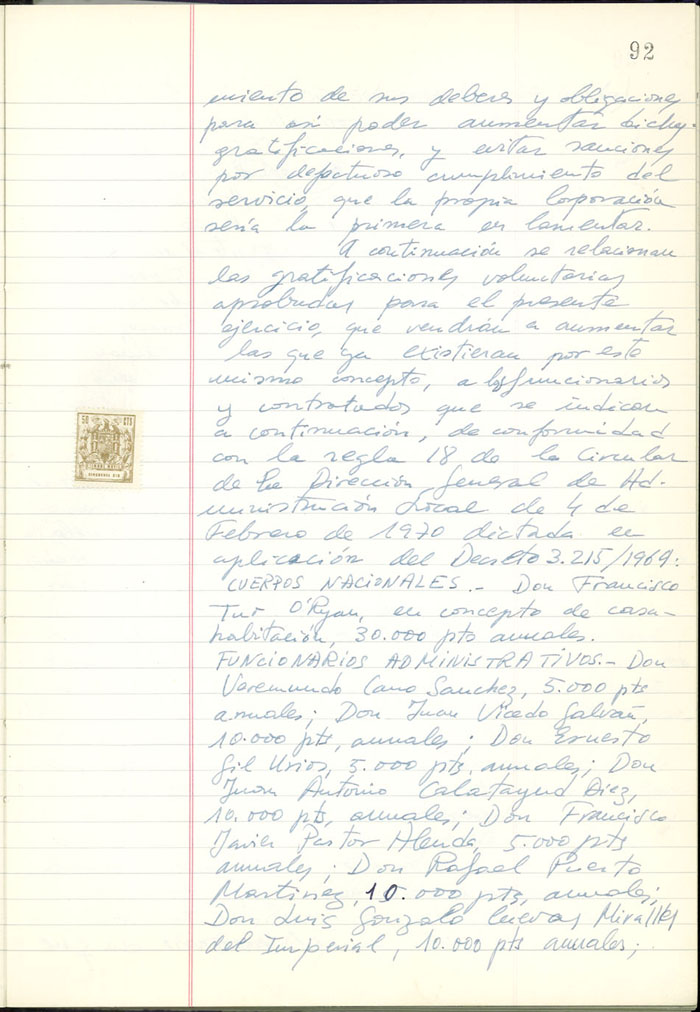 92
miento de sus deberes y obligaciones
para así poder aumentar dichas
gratificaciones, y evitar sanciones
por defectuoso cumplimiento del
servicio, que la propia Corporación
sería la primera en lamentar.
A continuación se relacionan
las gratificaciones voluntarias
aprobadas para el presente
ejercicio, que vendrán a aumentar
las que ya existieran por este
mismo concepto, a los funcionarios
y contratados que se indican
a continuación, de conformidad
con la regla 18 de la Circular
de la Dirección General de Ad-
ministración Local de 4 de
Febrero de 1970 dictada en
aplicación del Decreto 3.215/1969:
CUERPOS NACIONALES.- Don Francisco
Tur O'Ryan, en concepto de casa-
habitación, 30.000 pts anuales.
FUNCIONARIOS ADMINISTRATIVOS.- Don
Veremundo Cano Sanchez, 5.000 pts
anuales; Don Juan Vicedo Galvañ,
10.000 pts, anuales; Don Ernesto
Gil Urios, 5.000 pts, anuales; Don
Juan Antonio Calatayud Diez,
10.000 pts, anuales; Don Francisco
Javier Pastor Alenda, 5.000 pts
anuales; Don Rafael Puerto
Martinez, 10.000 pts, anuales;
Don Luis Gonzalo Cuevas Miralles
del Imperial, 10.000 pts anuales;
50 CTS